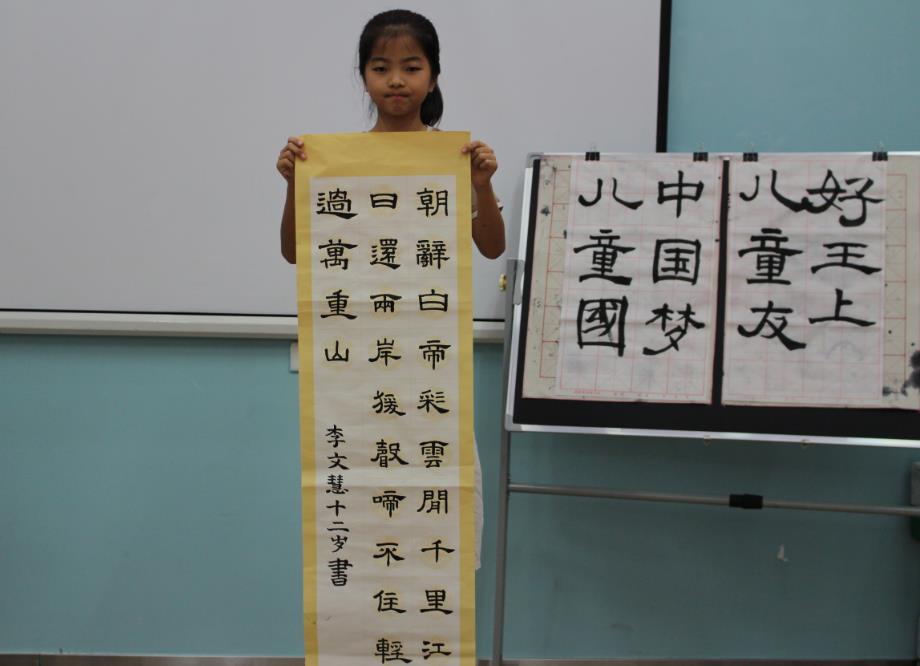 朝辭白帝彩雲閒千里江
日還兩岸猨聲啼不住輕
過萬重山
李文慧十二岁書
好王上
儿童友
中国梦
儿童國